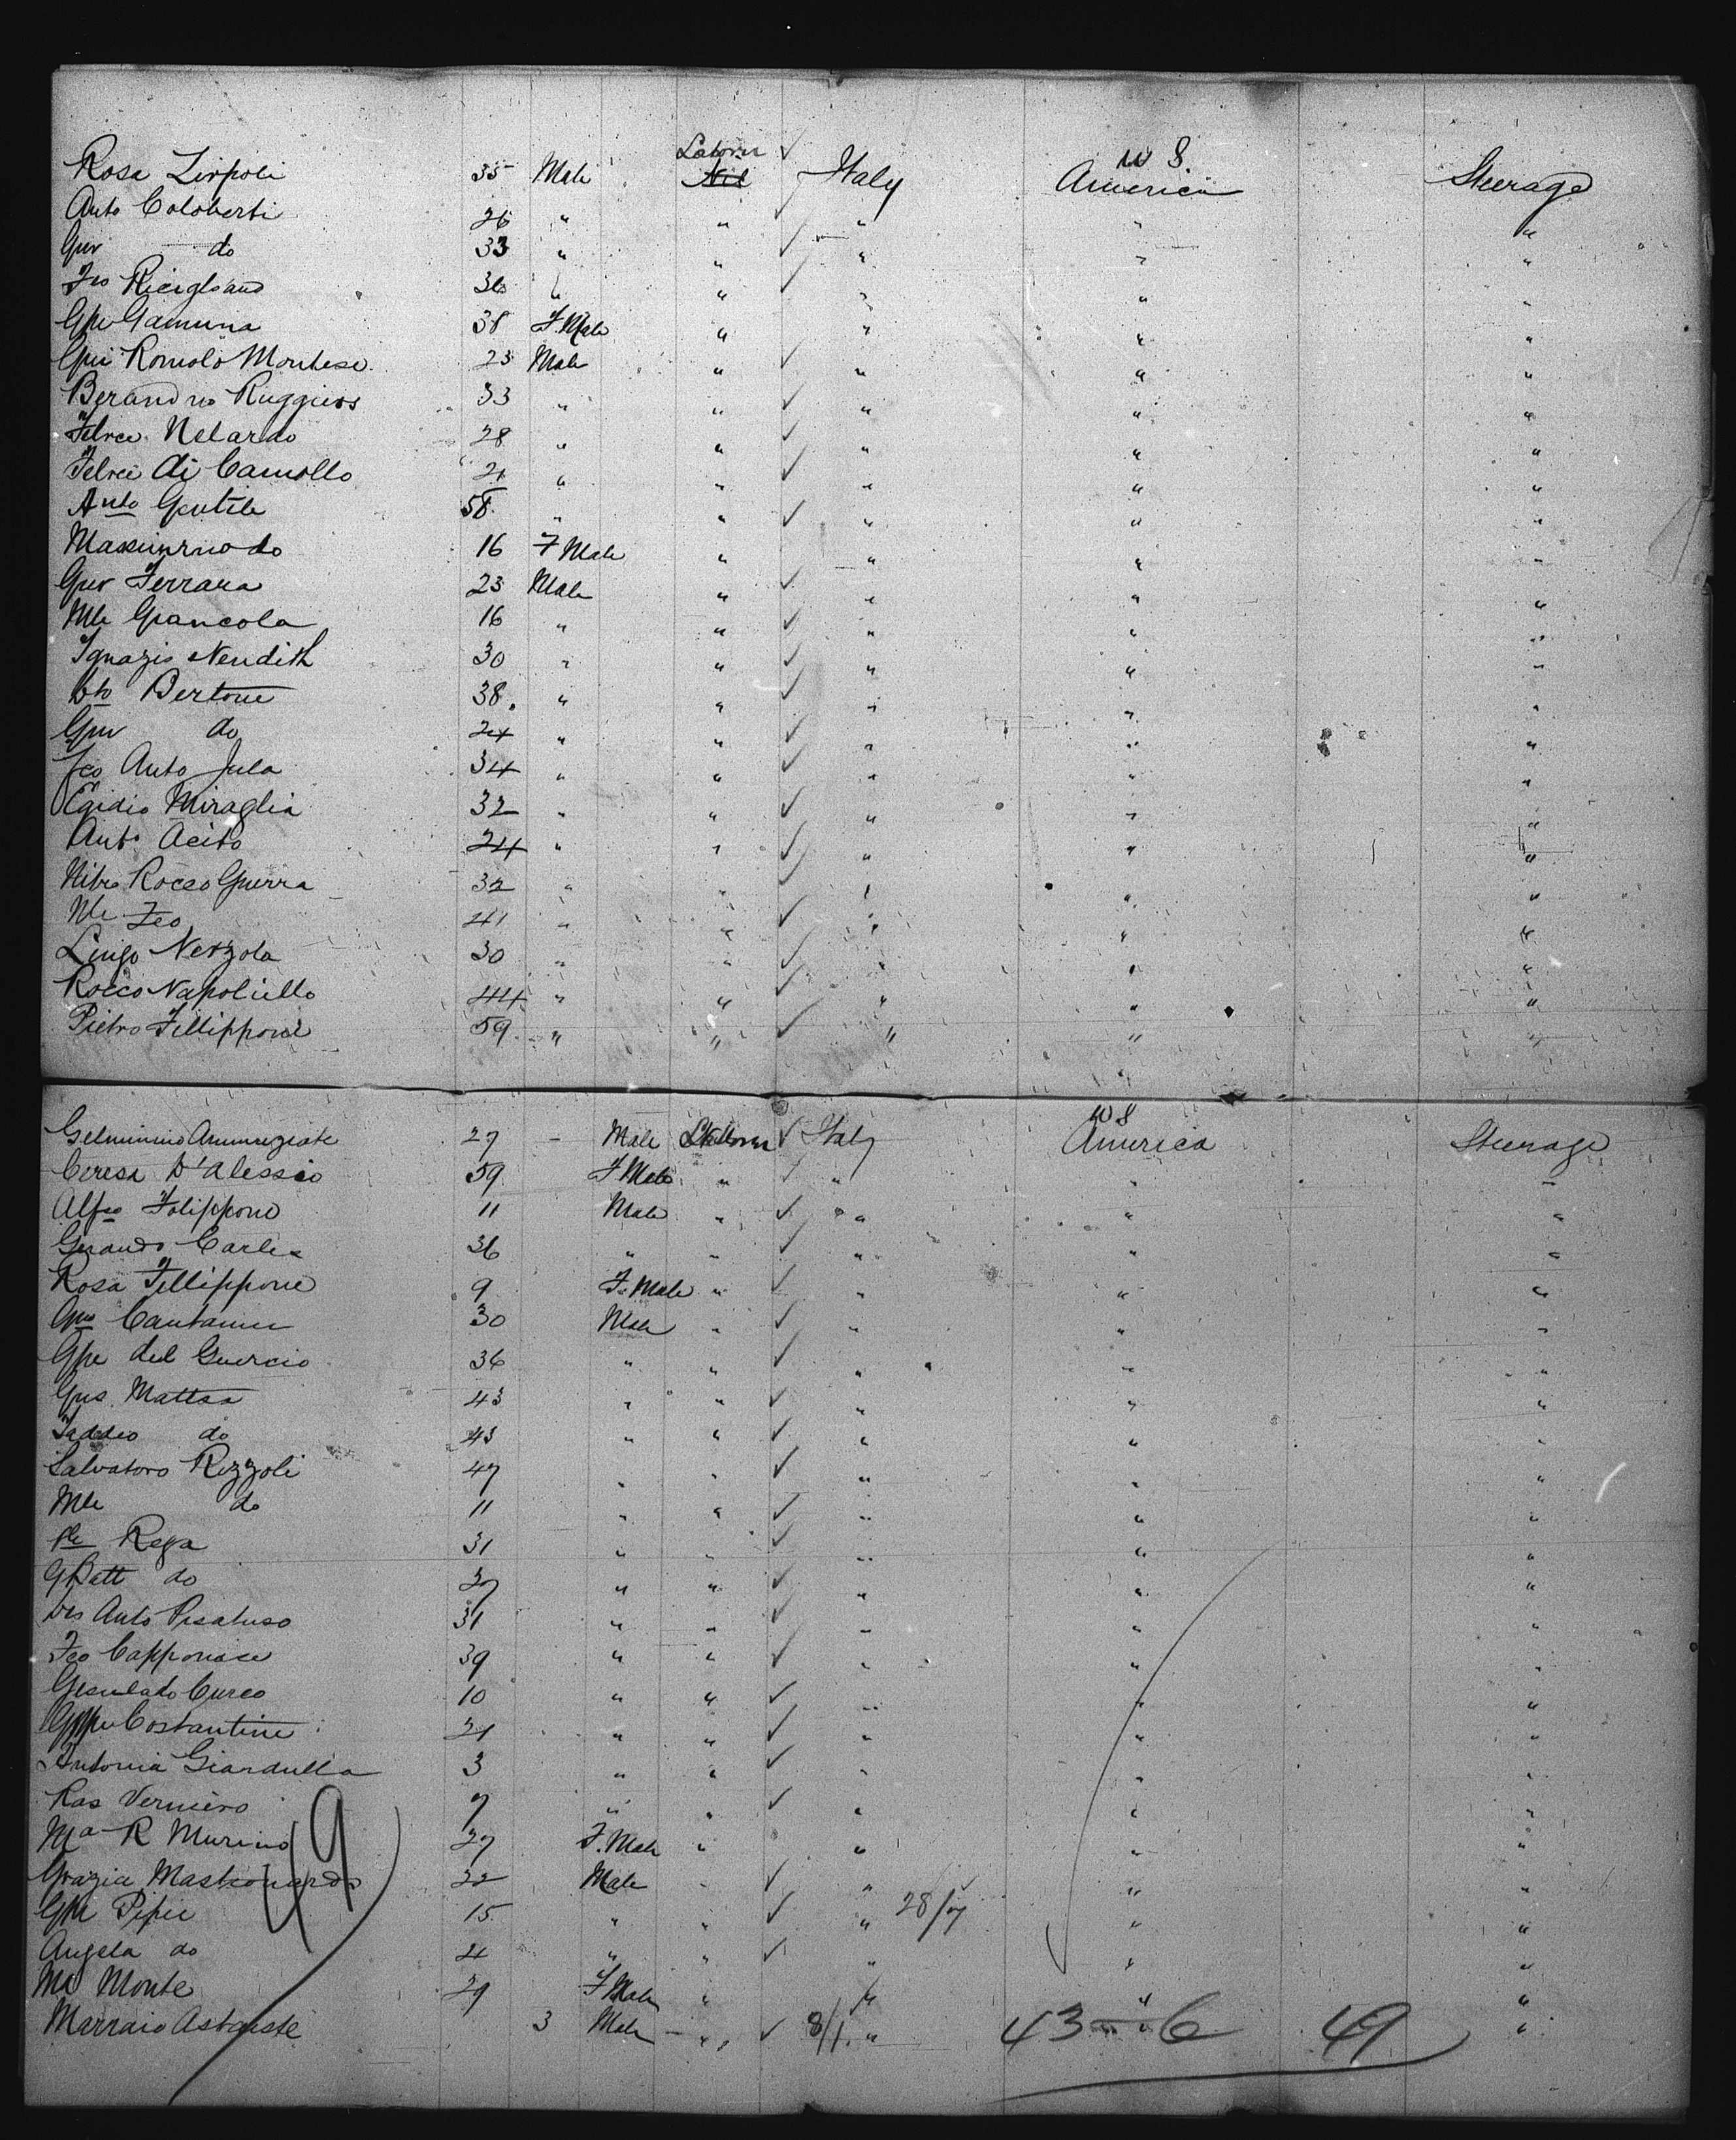 Rosa Lirpoli 35 Male Laborer ~~Nil~~ ✓ Italy W 8 America Steerage
Anto Coloberti 26 " " ✓ " " "
Gev do 33 " " ✓ " " "
Fco Ricigliano 36 " " ✓ " " "
Gpe Gamuna 38 F. Male " " " "
Gpe Romolo Montese 23 Male " ✓ " " "
Berandno Ruggiers 33 " " ✓ " " "
Felice Nelardo 28 " " ✓ " " "
Felice di Camollo 21 " " ✓ " " "
Anto Gentile 58 " " ✓ " " "
Massimino do 16 F Male " " " "
Gev Ferrara 23 Male " ✓ " " "
Mle Giancola 16 " " ✓ " " "
Ignazio Nendith 30 " " ✓ " " "
Dto Bertone 38 " " ✓ " " "
Gev do 24 " " ✓ " " "
Fco Anto Jula 34 " " ✓ " " "
Egidio Miraglia 32 " " ✓ " " "
Anto Acito 24 " " ✓ " " "
Rocco Guerra 32 " " ✓ " " "
Mle Feo 41 " " ✓ " " "
Nerzola 30 " " ✓ " " "
Rocco Napoliello 44 " " ✓ " " "
Pietro Fillippone 59 " " ✓ " " "
Gelminino Annunziate 27 - Male Laborer ✓ Italy W 8 America Steerage
Ceresa D'Alessio 59 F Male " " " "
Alfco Folippone 11 Male " ✓ " " "
Gerando Carles 36 " " ✓ " " "
Rosa Fillippone 9 F. Male " ✓ " " "
Cantamer 30 Male " ✓ " " "
Gpe del Guercio 36 " " ✓ " " "
Gus Mattas 43 " " ✓ " " "
Taddeo do 43 " " ✓ " " "
Salvatoro Rizzoli 47 " " ✓ " " "
Mle do 11 " " ✓ " " "
Ple Rega 31 " " ✓ " " "
GBatt do 27 " " ✓ " " "
Anto Pisatuso 31 " " ✓ " " "
Fco Capponase 39 " " ✓ " " "
Gesulado Curco 10 " " ✓ " " "
Gppe Costantine 21 " " ✓ " " "
Antonia Giardulla 3 " " ✓ " " "
Ras Verniero 7 " " ✓ " " "
Ma R Murino 27 F. Male " " " "
Grazia 22 Male " ✓ " " "
Gpe Pipie 15 " " ✓ " 28/7 " "
Angela do 4 " " ✓ " " "
Ma Monte 29 F Male " " " "
Marraio 3 Male " ✓ 8/1. " " "
49
43 - 6 49